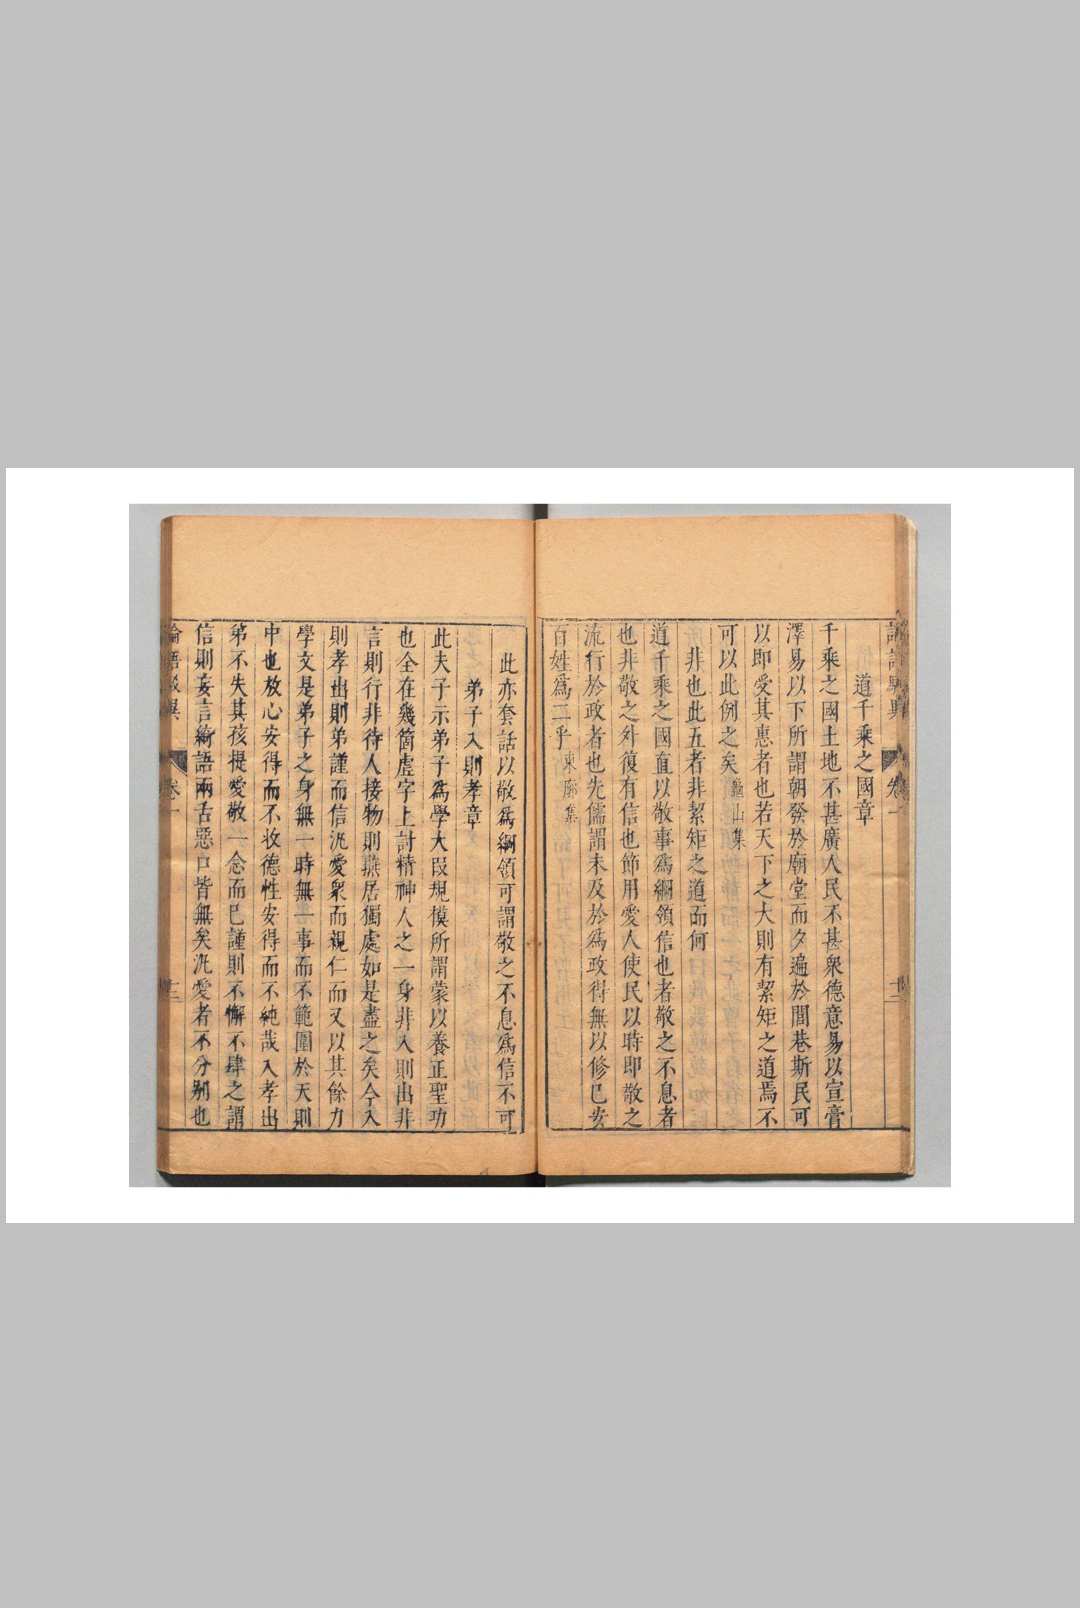 道千乘之國章
千乘之國土地不甚廣人民不甚衆德意易以宣膏
澤易以下所謂朝發於廟堂而夕遍於閭巷斯民可
以即受其惠者也若天下之大則有絜矩之道焉不
可以此例之矣龜山集
非也此五者非絜矩之道而何
道千乘之國直以敬事爲綱領信也者敬之不息者
也非敬之外復有信也節用愛人使民以時即敬之
流行於政者也先儒謂未及於爲政得無以修己安
百姓爲二乎東廓集
此亦套話以敬爲綱領可謂敬之不息爲信不可
弟子入則孝章
此夫子示弟子爲學大叚規模所謂蒙以養正聖功
也全在幾箇虛字上討精神人之一身非入則出非
言則行非待人接物則燕居獨處如是盡之矣今入
則孝出則弟謹而信汎愛衆而親仁而又以其餘力
學文是弟子之身無一時無一事而不範圍於天則
中也放心安得而不收德性安得而不純哉入孝出
弟不失其孩提愛敬一念而已謹則不懈不肆之謂
信則妄言綺語兩舌惡口皆無矣汎愛者不分别也
卷一
十二